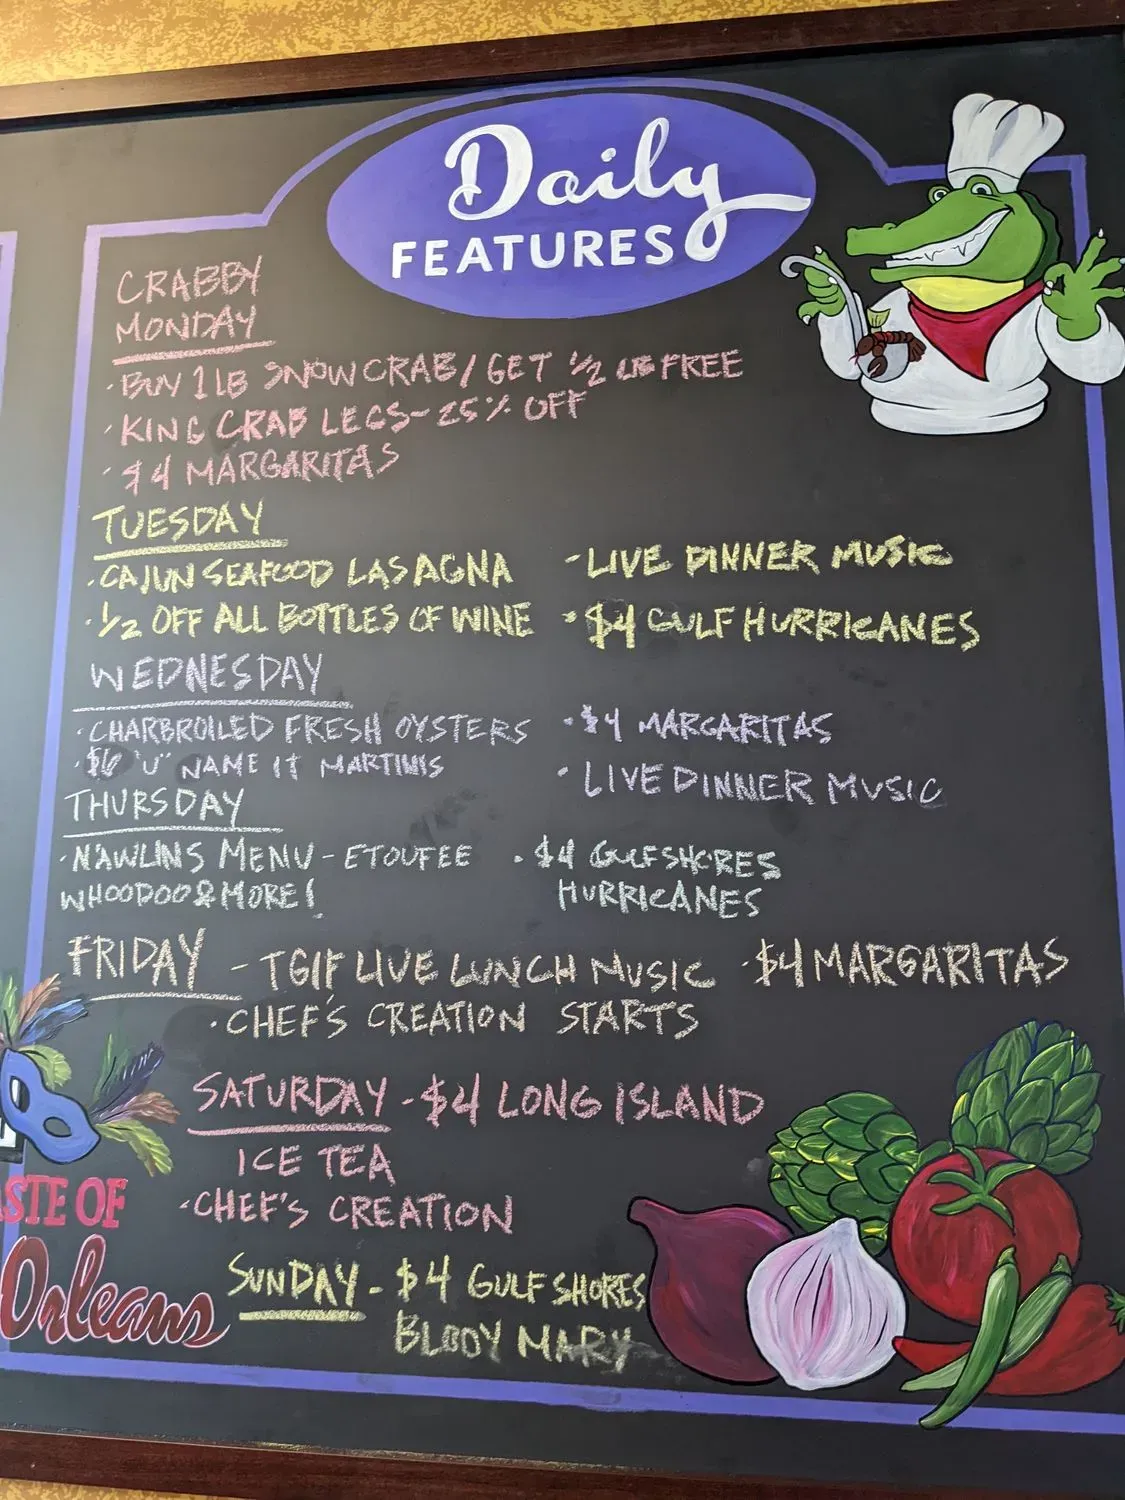 Daily
FEATURES
CRABBY
MONDAY
· BUY 1 LB SNOW CRAB / GET 1/2 LB FREE
· KING CRAB LEGS - 25% OFF
· $4 MARGARITAS
TUESDAY
· CAJUN SEAFOOD LASAGNA
· 1/2 OFF ALL BOTTLES OF WINE
- LIVE DINNER MUSIC
· $4 GULF HURRICANES
WEDNESDAY
· CHARBROILED FRESH OYSTERS
· $6 "U" NAME IT MARTINIS
· $4 MARGARITAS
· LIVE DINNER MUSIC
THURSDAY
· N'AWLINS MENU - ETOUFEE
WHOODOO & MORE!
· $4 GULFSHORES
HURRICANES
FRIDAY - TGIF LIVE LUNCH MUSIC · $4 MARGARITAS
· CHEF'S CREATION STARTS
SATURDAY - $4 LONG ISLAND
ICE TEA
· CHEF'S CREATION
SUNDAY - $4 GULF SHORES
BLOODY MARY
STE OF
Orleans